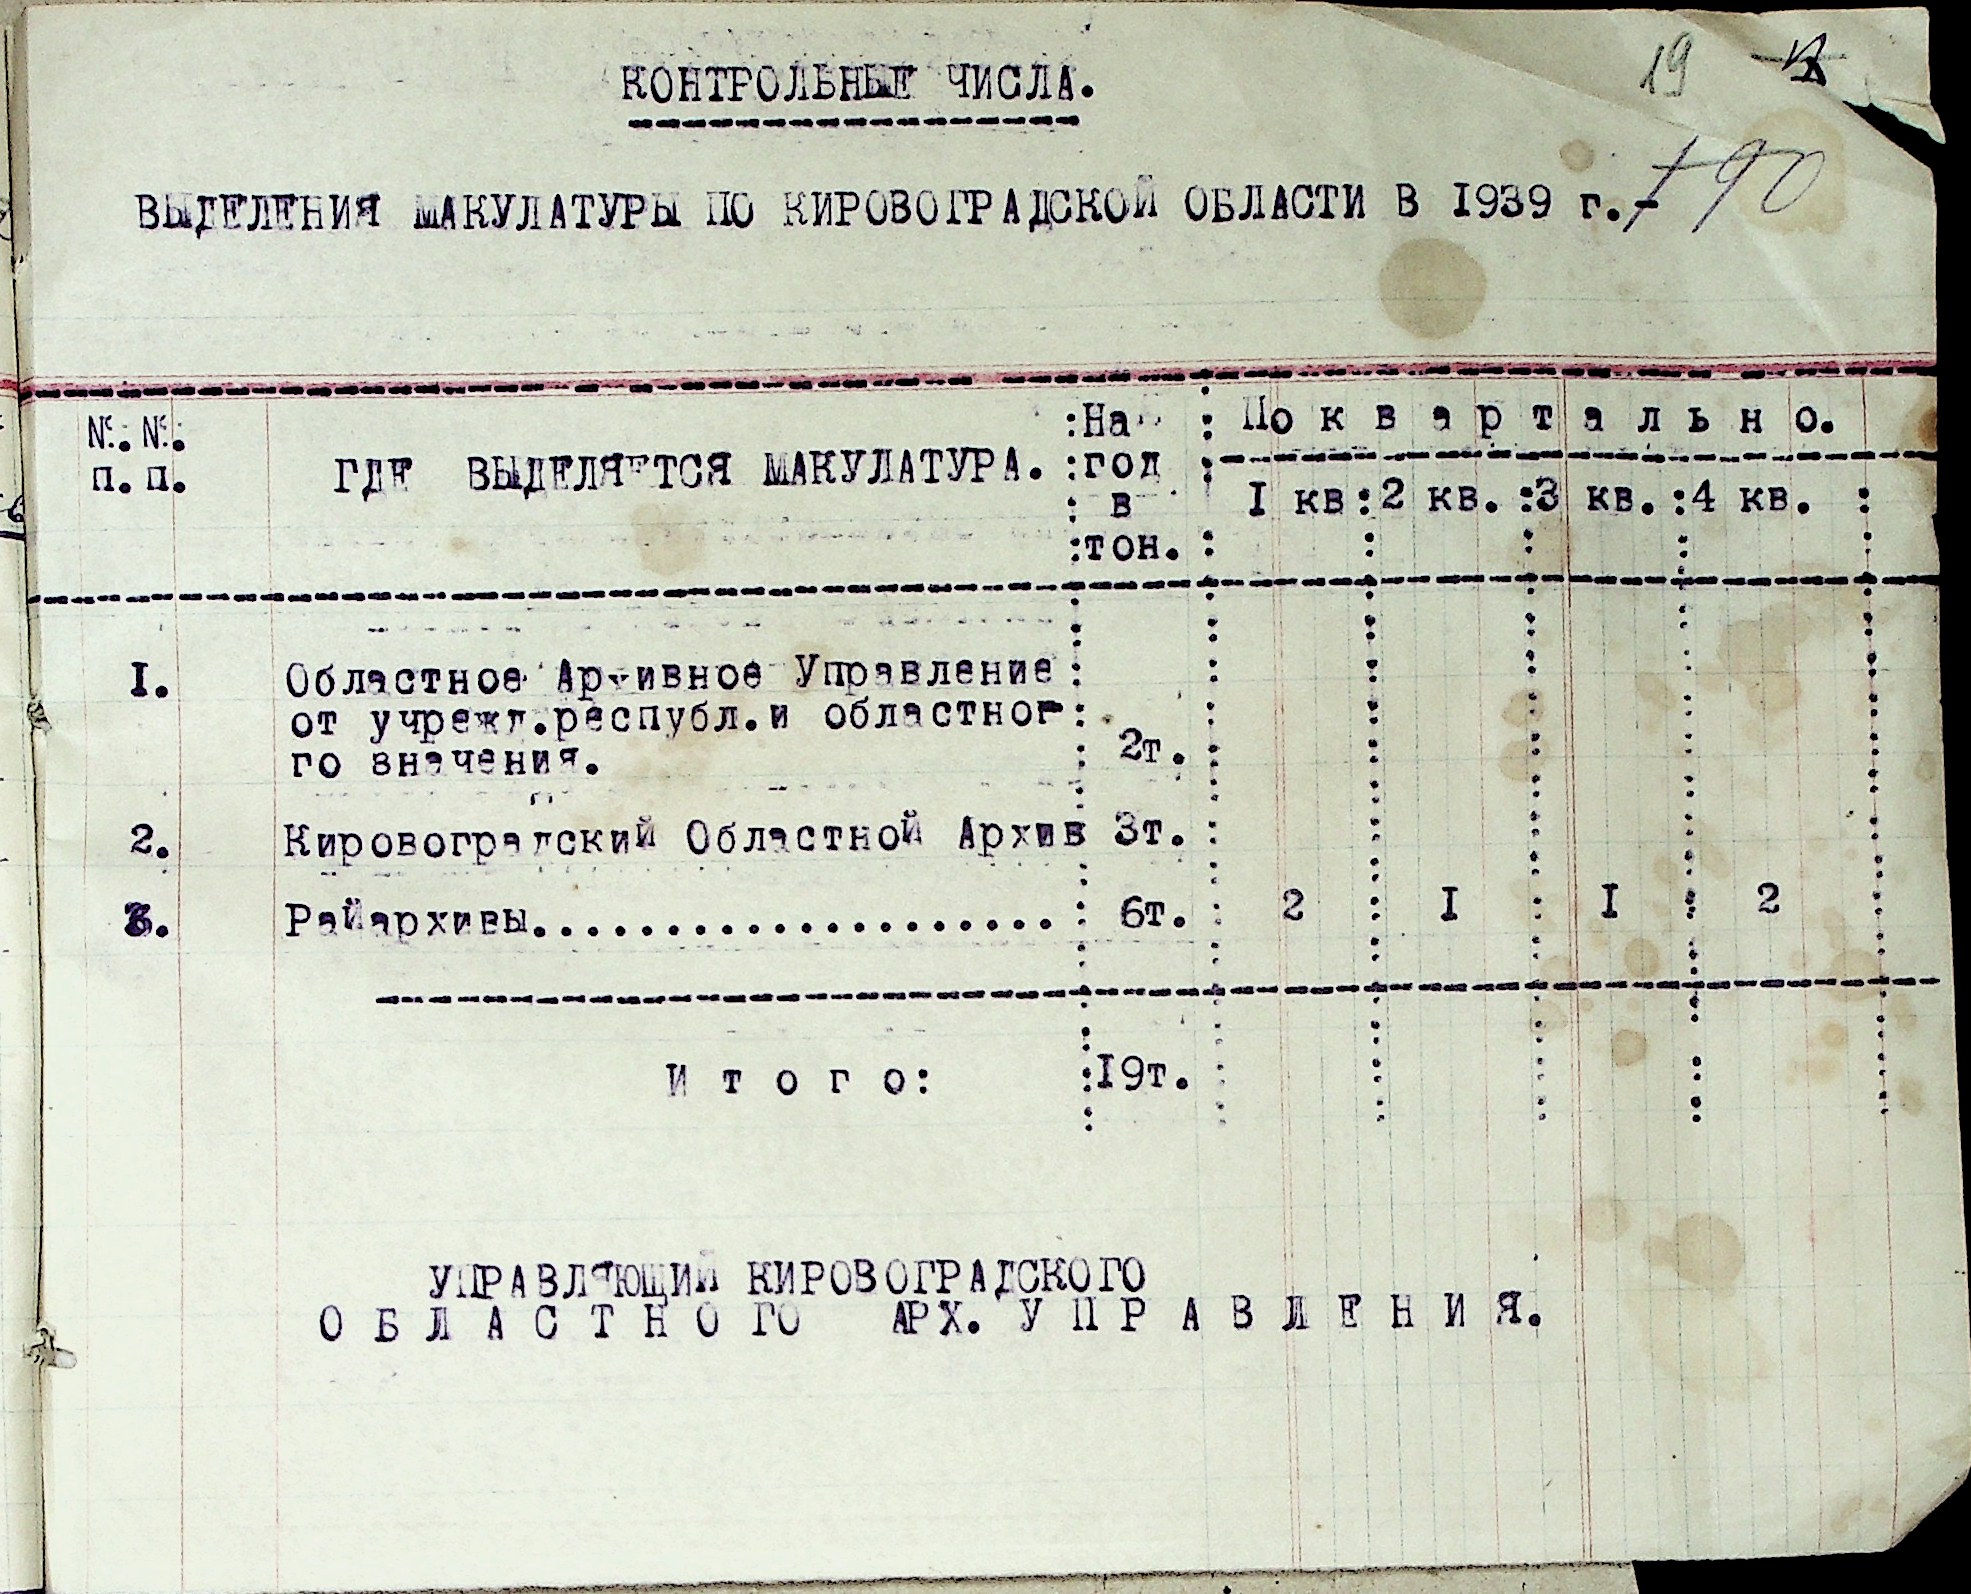 19
КОНТРОЛЬНЫЕ ЧИСЛА.
90
ВЫДЕЛЕНИЯ МАКУЛАТУРЫ ПО КИРОВОГРАДСКОЙ ОБЛАСТИ В 1939 г.-
№.№. П.П.
ГДЕ ВЫДЕЛЯЕТСЯ МАКУЛАТУРА.
На год в тон.
По к в а р т а л ь н о.
I кв: 2 кв. :3 кв. :4 кв. :
I. Областное Архивное Управление
от учрежд.республ.и областно-
го значения. 2т.
2. Кировоградский Областной Архив 3т.
3. Райархивы.................... 6т. 2 I I 2
И т о г о: I9т.
УПРАВЛЯЮЩИЙ КИРОВОГРАДСКОГО
О Б Л А С Т Н О ГО АРХ. У П Р А В Л Е Н И Я.